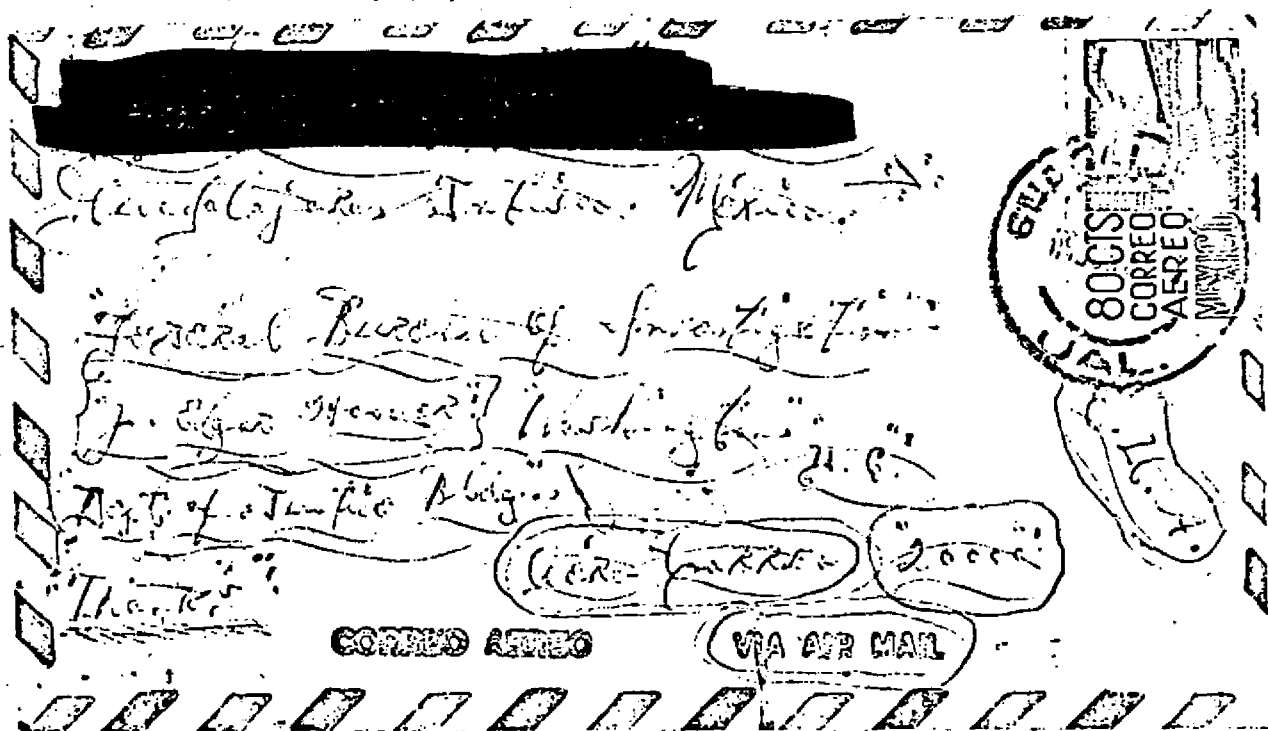 Guadalajara, Jalisco. México.
"Federal Bureau of Investigation"
"J. Edgar Hoover" "Washington"
D.C."
Dept. of Justice Bldg."
"Aéro-Correo"
"Thanks"
CORREO AEREO
VIA AIR MAIL
80 CTS
CORREO
AEREO
MEXICO
JAL.